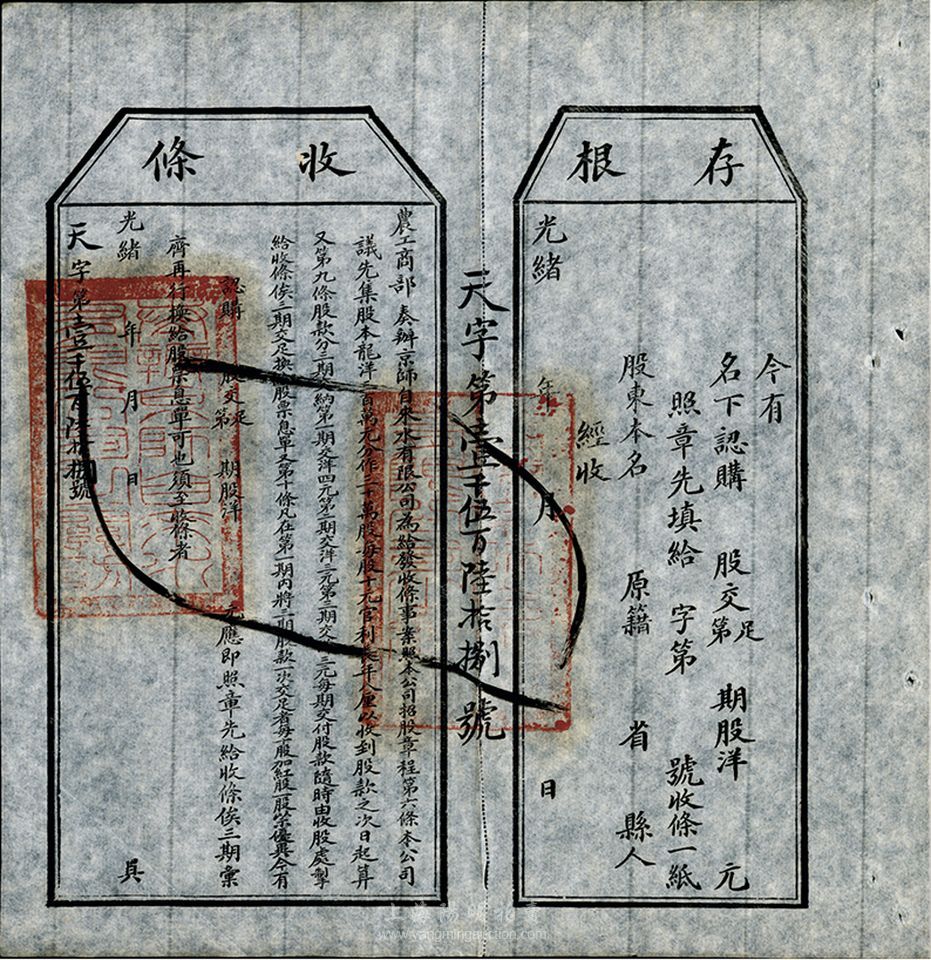 存根
今有
名下認購 股交足第 期股洋 元
照章先填給 字第 號收條一紙
股東本名 原籍 省 縣人
經收
光緒 年 月 日
天字第壹千伍百陸拾捌號
收條
農工商部奏辦京師自來水有限公司為給發收條事案照本公司招股章程第六條本公司
議先集股本龍洋三百萬元分作三十萬股每股十元官利長年八厘以收到股款之次日起算
又第九條股款分三期交納第一期交洋四元第二期交洋三元第三期交洋三元每期交付股款隨時由收股處掣
給收條俟三期交足換給股票息單又第十條凡在第一期內將三期股款一次交足者每 股加紅股一股以示優異今有
認購 股交足第 期股洋 元應即照章先給收條俟三期彙
齊再行換給股票息單可也須至收條者
光緒 年 月 日 具
天字第壹千伍百陸拾捌號
www.yangmingauction.com